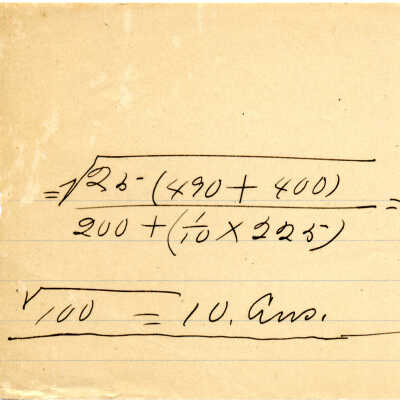 = √25 (490 + 400)
200 + (1/10 × 225) =
√100 = 10. Ans.